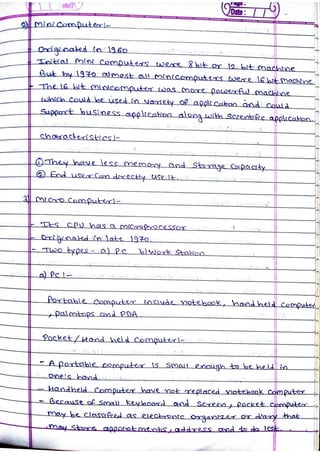 Date: 11
2) Minicomputer:-
- Originated in 1960
- Initial mini computers were 8 bit or 12 bit machine
But by 1970 almost all minicomputers were 16 bit machine
- The 16 bit minicomputer was more powerful machine
which could be used in variety of application and could
support business application along with scientific application.
characteristics:-
① They have less memory and storage capacity
② End user can directly use it.
3) micro computer:-
- Its CPU has a microprocessor
- Originated in late 1970.
- Two types - a) PC b) Work Station
a) PC :-
Portable computer include notebook, hand held computer
, palmtops and PDA.
Pocket / Hand held Computer:-
- A portable computer is small enough to be held in
one's hand.
- Handheld Computer have not replaced notebook computer
- Because of small keyboard and screen, pocket computer
may be classified as electronic organizer or diary that
may store appointments, address and to do list.